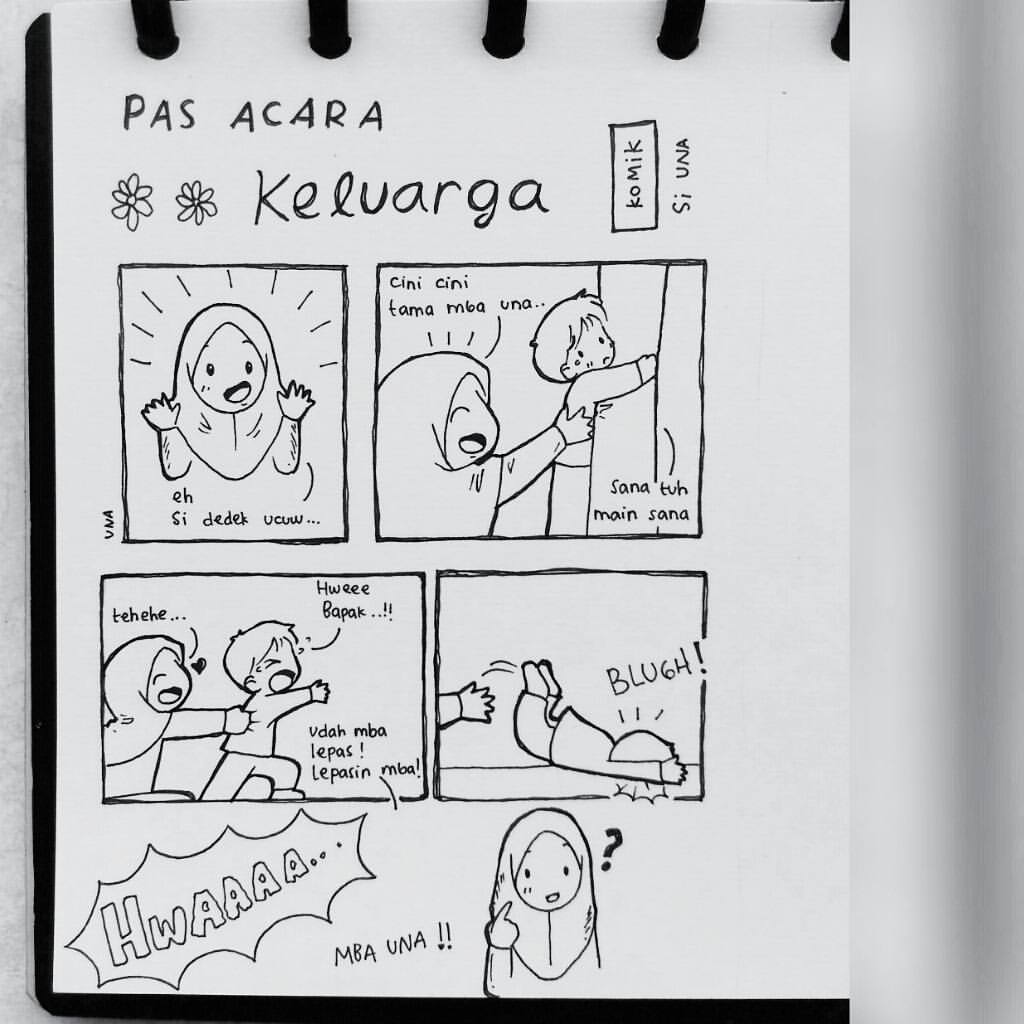 PAS ACARA
Keluarga
KOMIK
Si UNA
eh
Si dedek ucuw...
UNA
cini cini
tama mba una..
Sana tuh
main sana
tehehe...
Hweee
Bapak..!!
Udah mba
lepas!
Lepasin mba!
BLUGH!
HWAAAA...
MBA UNA !!
?